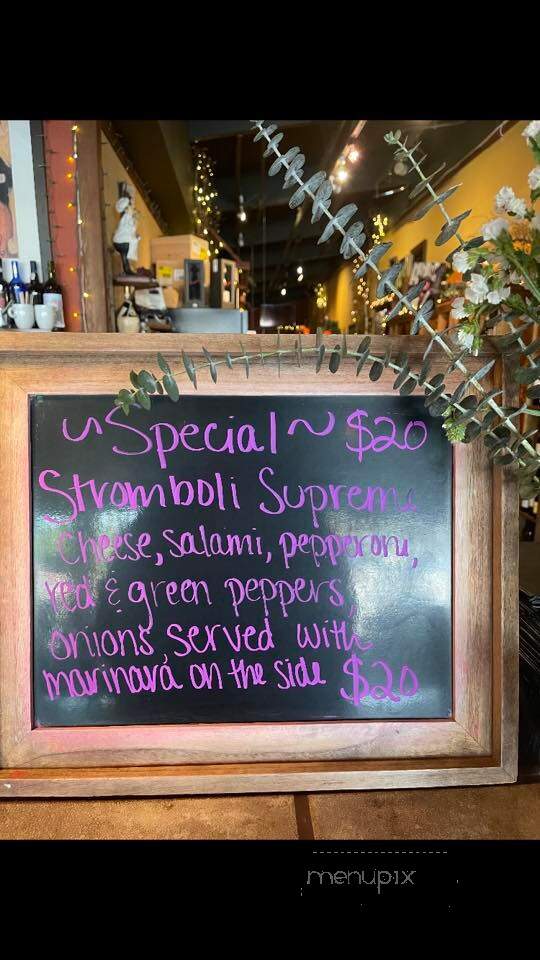 ~Special~ $20
Stromboli Supreme
Cheese, salami, pepperoni,
red & green peppers,
onions, served with
marinara on the side $20
menupix